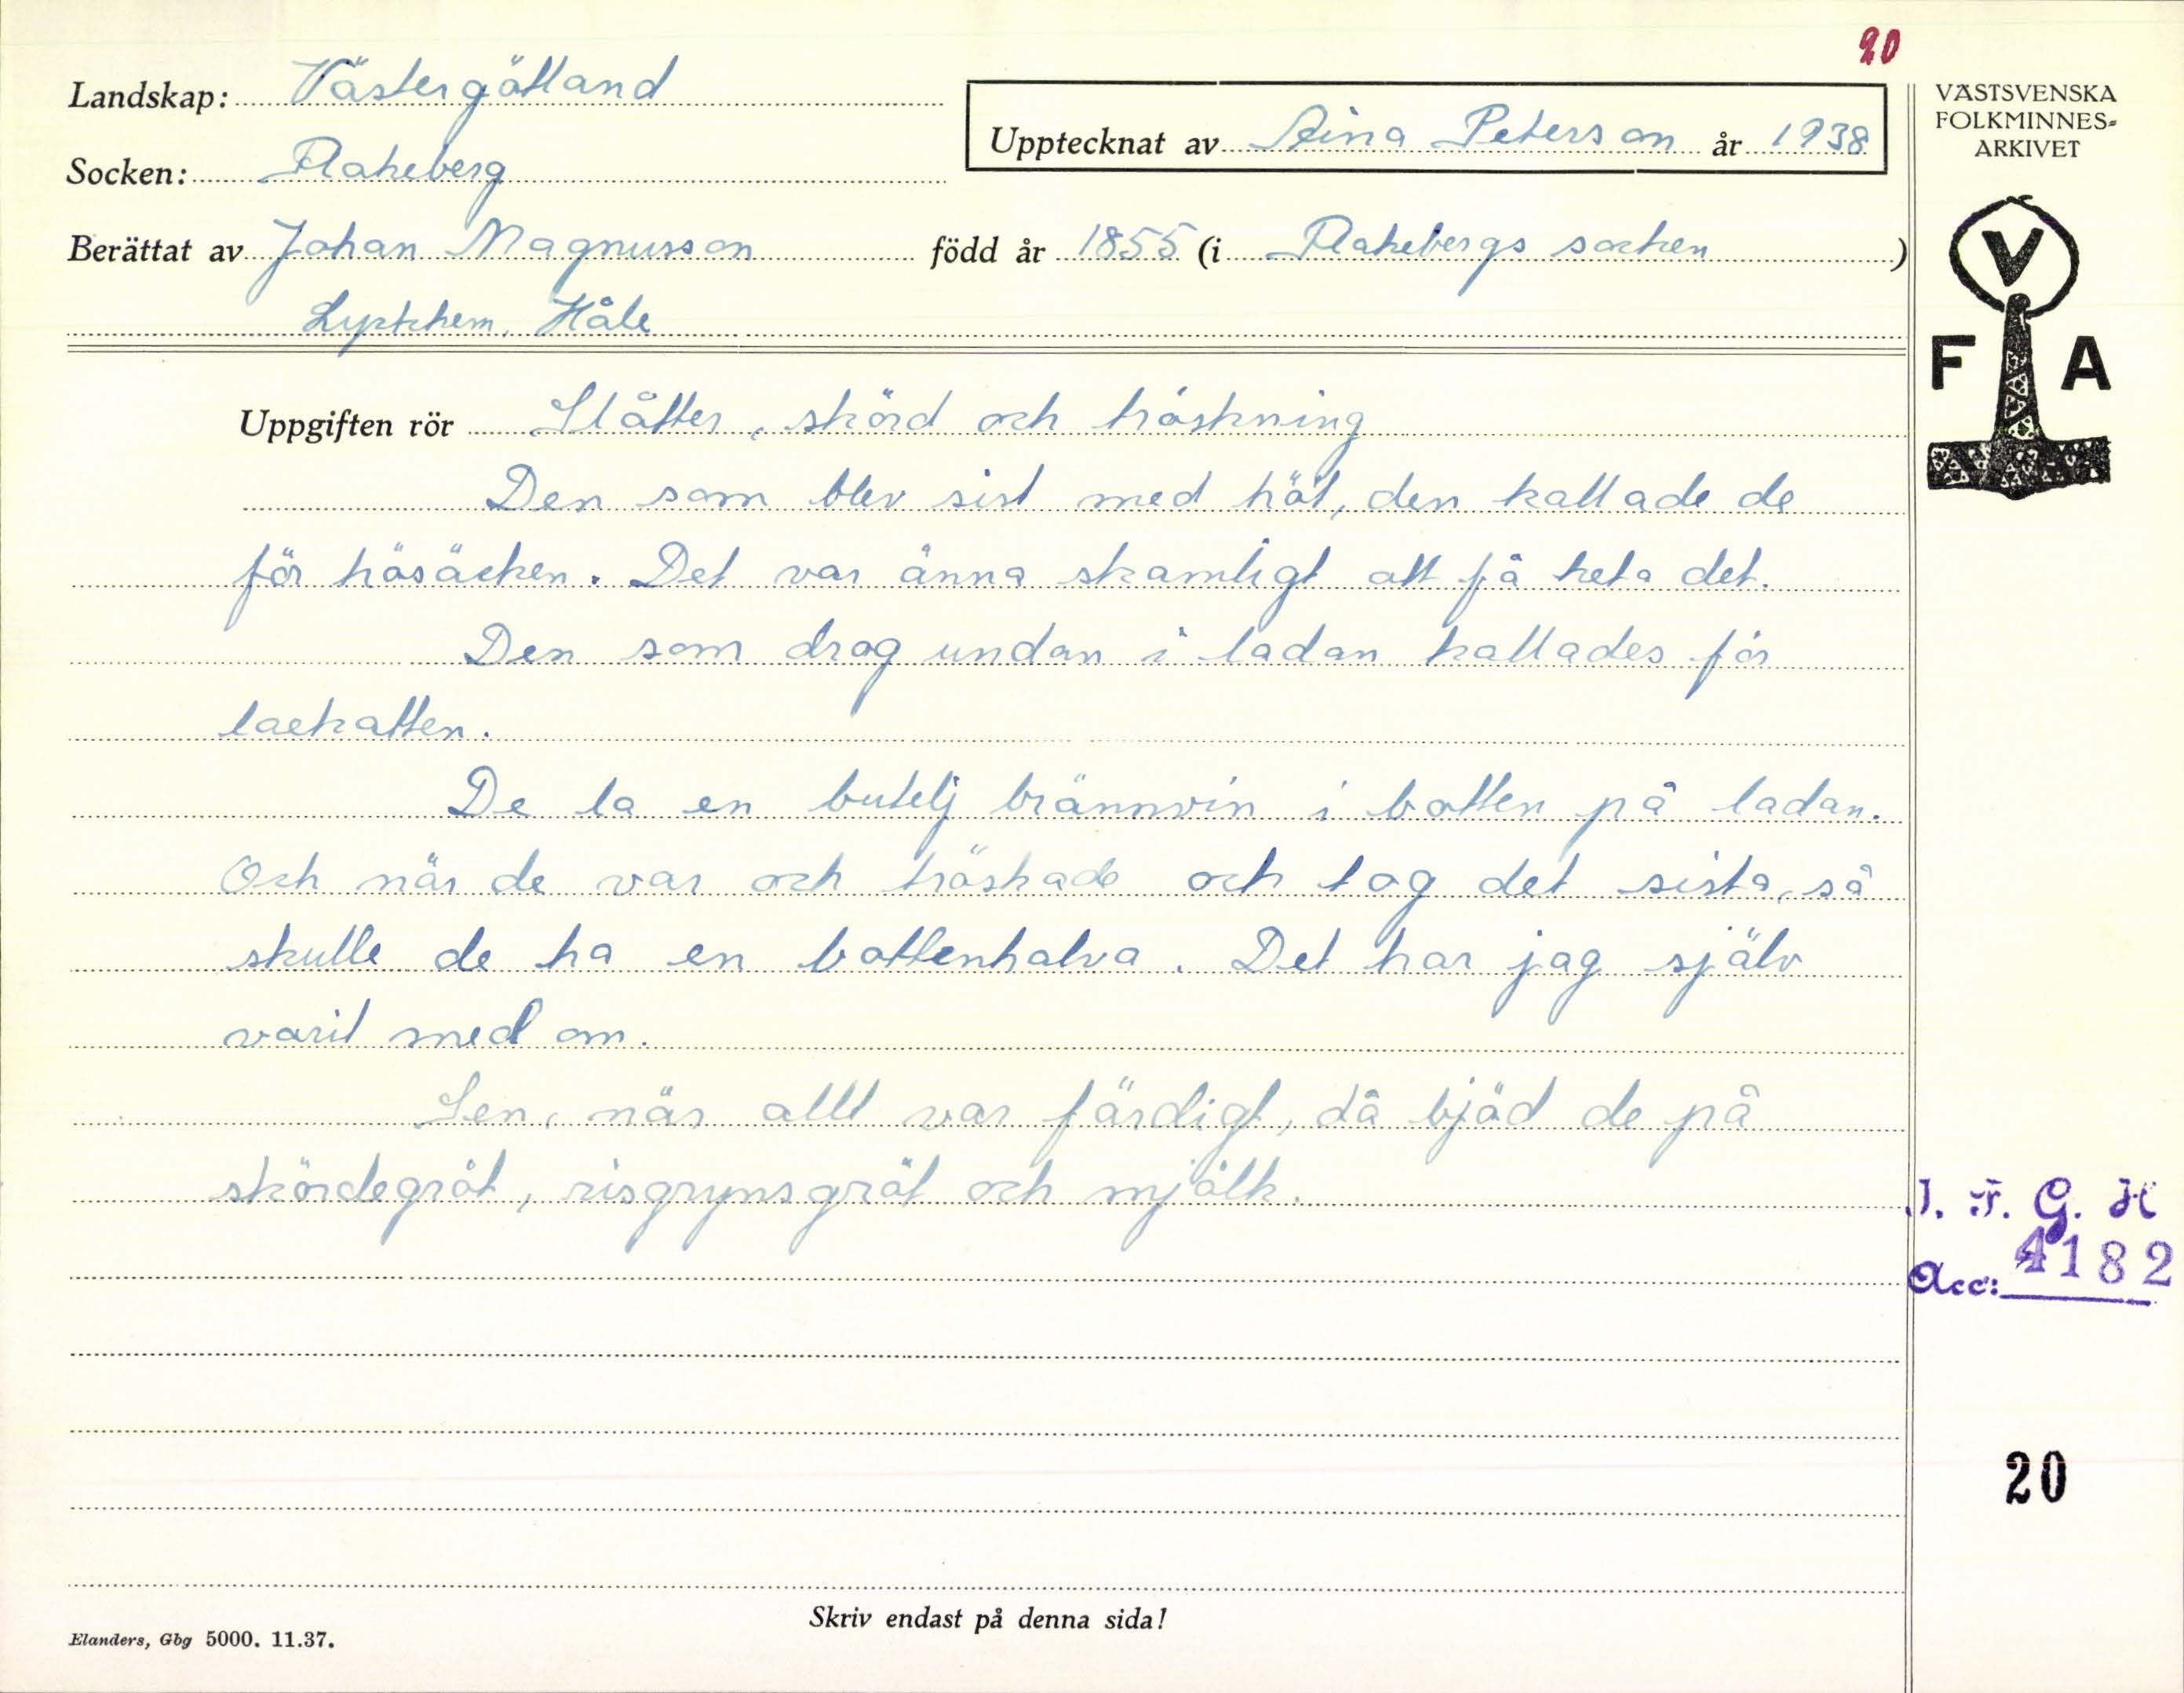 20
Landskap: Västergötland
Upptecknat av Aina Peterson år 1938
VÄSTSVENSKA
FOLKMINNES-
ARKIVET
Socken: Flakeberg
Berättat av Johan Magnusson född år 1855 (i Flakebergs socken)
Lyckhem, Håle
V
F A
Uppgiften rör Slåtter, skörd och tröskning
Den som blev sist med höt, den kallade de
för hösäcken. Det var änna skamligt att få heta det.
Den som drog undan i ladan kallades för
laekatten.
De la en butelj brännvin i botten på ladan.
Och när de var och tröskade och tog det sista, så
skulle de ha en bottenhalva. Det har jag själv
varit med om.
Sen, när allt var färdigt, då bjöd de på
skördegröt, risgrynsgröt och mjölk.
I. F. G. H
Acc: 4182
20
Skriv endast på denna sida!
Elanders, Gbg 5000. 11.37.